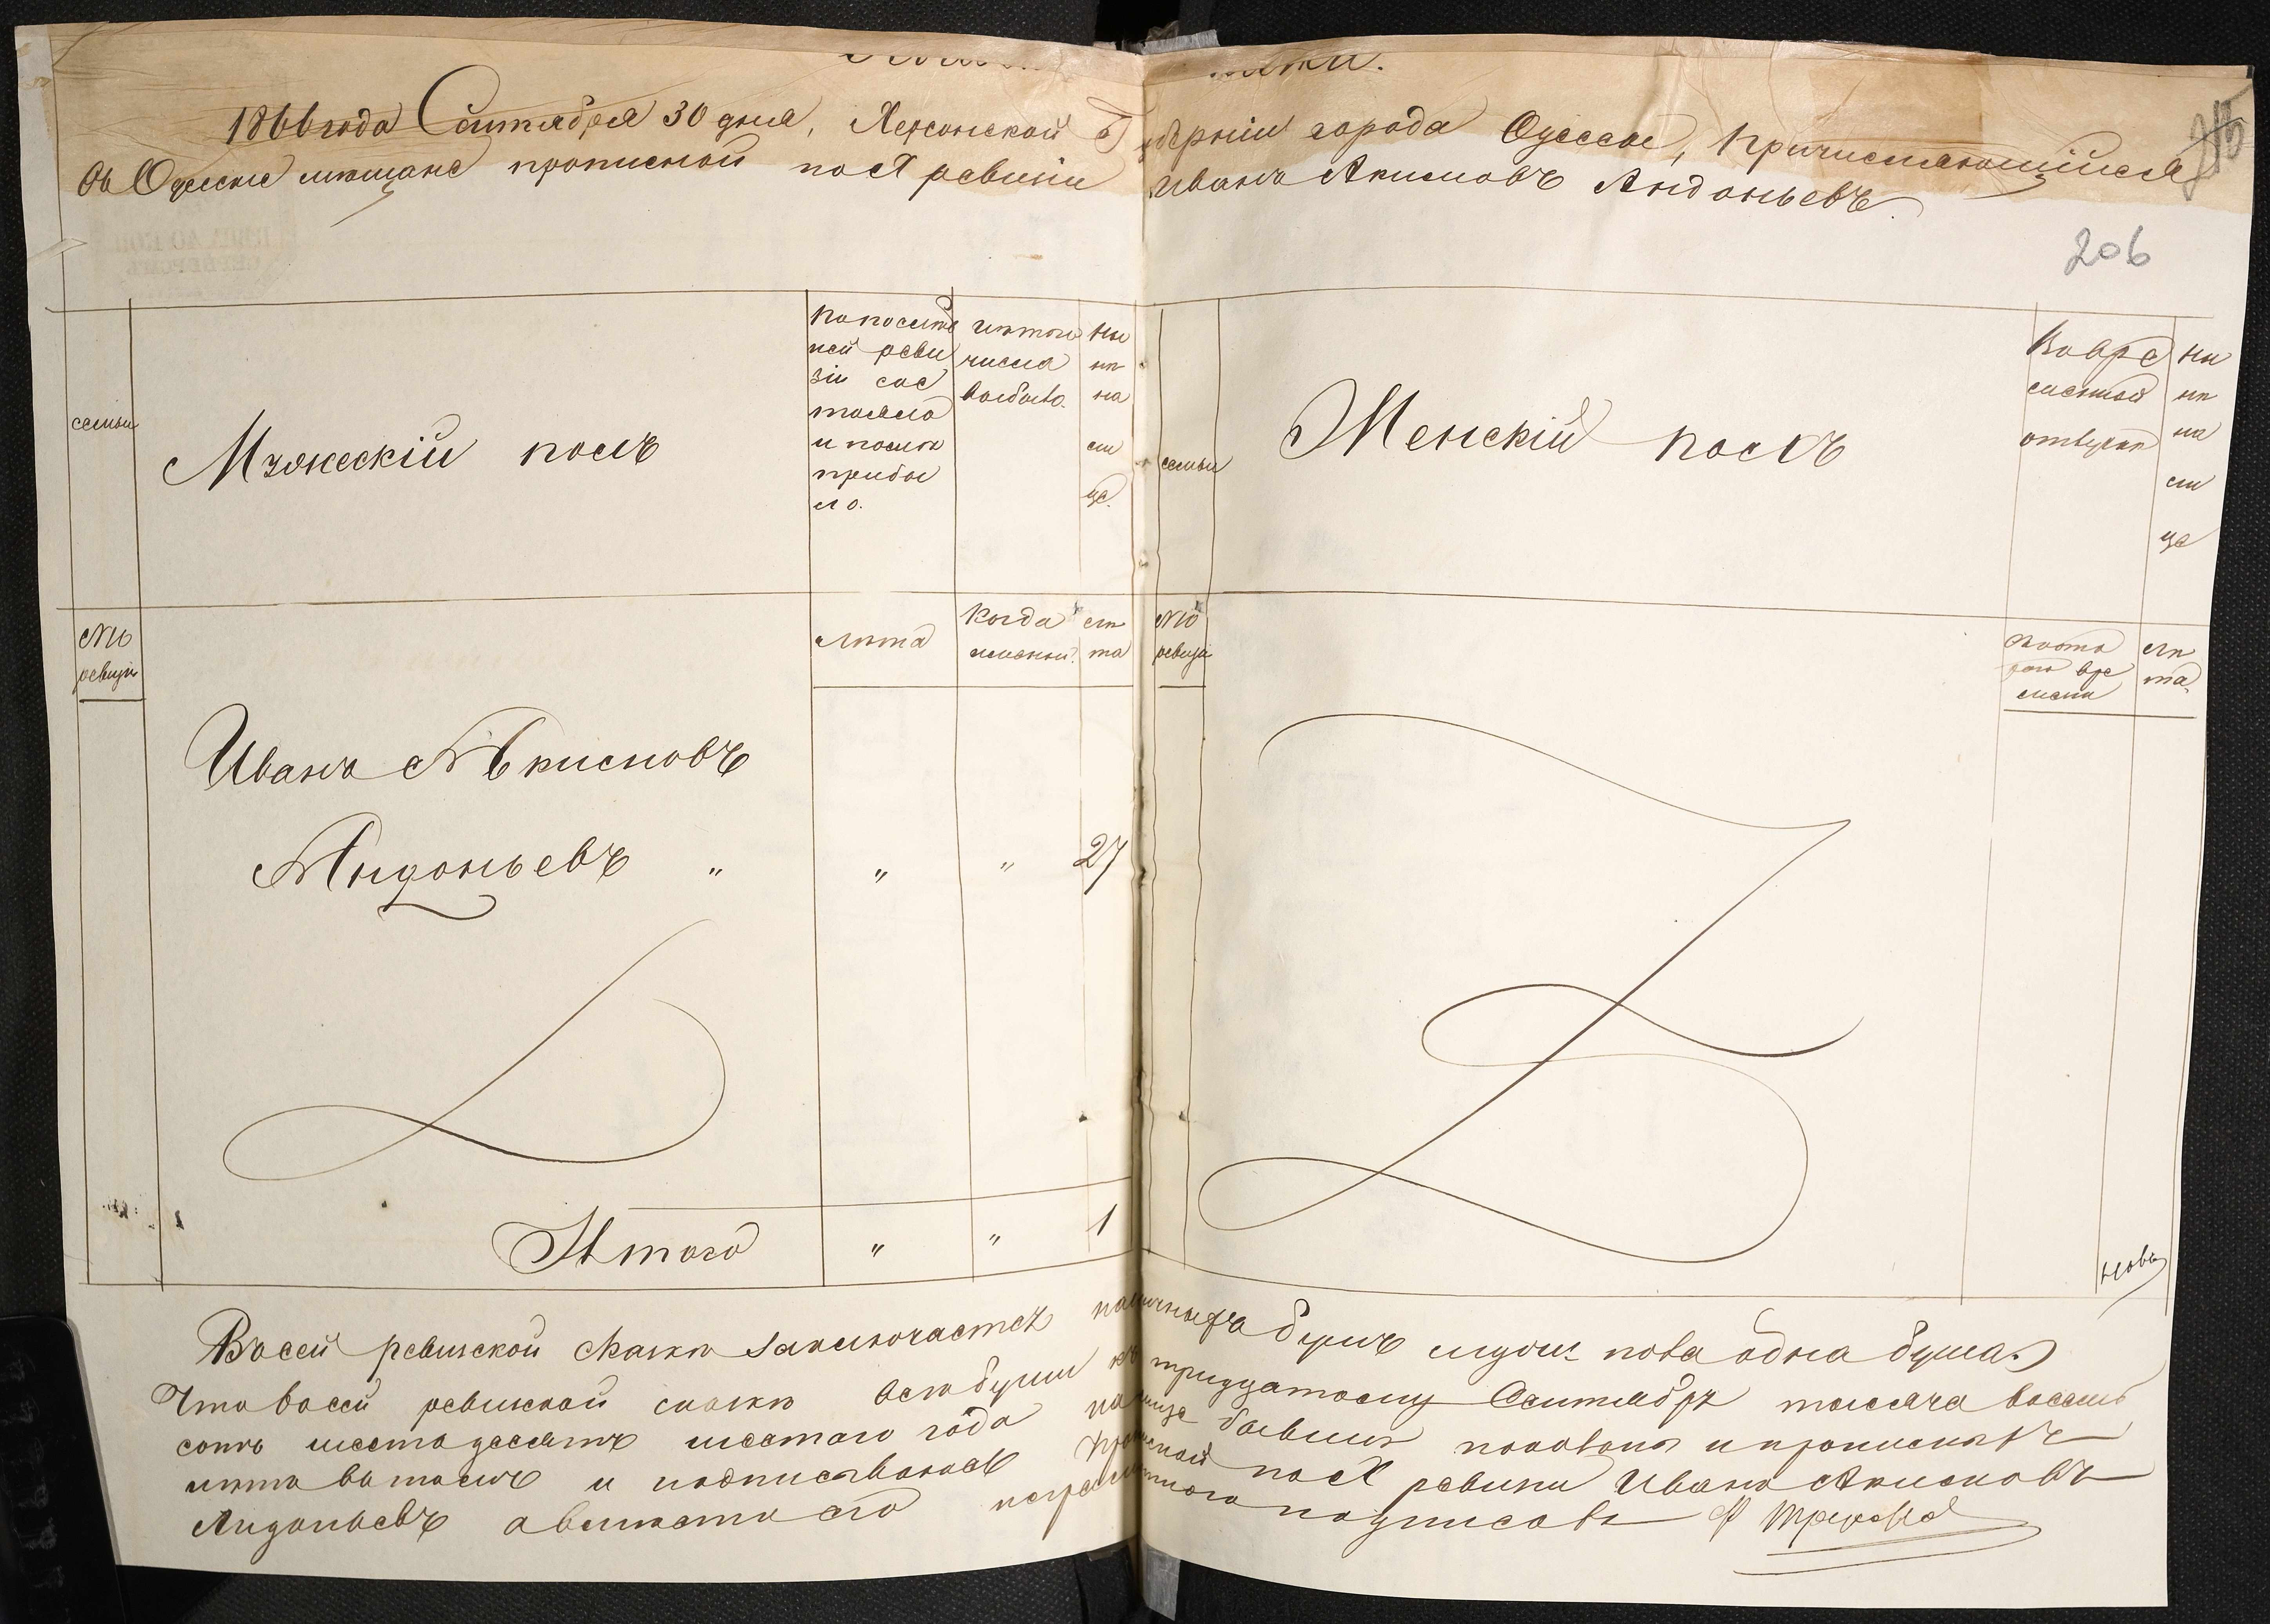 1866 года Сентября 30 дня, Херсонской Губерніи города Одессы, Причисляющійся
въ Одескіе мѣщане прописной по X ревизіи Иванъ Акимовъ Андоньевъ.
206
семьи
Мужескій полъ
По послѣд
ней реви
зіи сос
тояло
и послѣ
прибы
ло.
изъ того
числа
выбыло.
Ны
нѣ
на
ли
це.
семьи
Женскій полъ
Во вре
менной
отлучкѣ
Ны
нѣ
на
ли
це
№
ревизіи
Лѣта
Когда
именно?
лѣ
та
№
ревизіи
Съ кото
раго вре
мени
Лѣ
та.
Иванъ Акимовъ
Андоньевъ " " " 27
Итого " " 1
Въ сей ревизской сказкѣ заключается наличныхъ душъ мужеска пола одна душа.
Что въ сей ревизской сказкѣ всѣ души къ тридцатому Сентября тысяча восемь
сотъ шестьдесятъ шестаго года на лицо бывшія показаны и прописныхъ
нѣтъ въ томъ и подписываюсь прописной по X ревизіи Иванъ Акимовъ
Андоньевъ а вмѣсто его неграмотнаго подписалъ